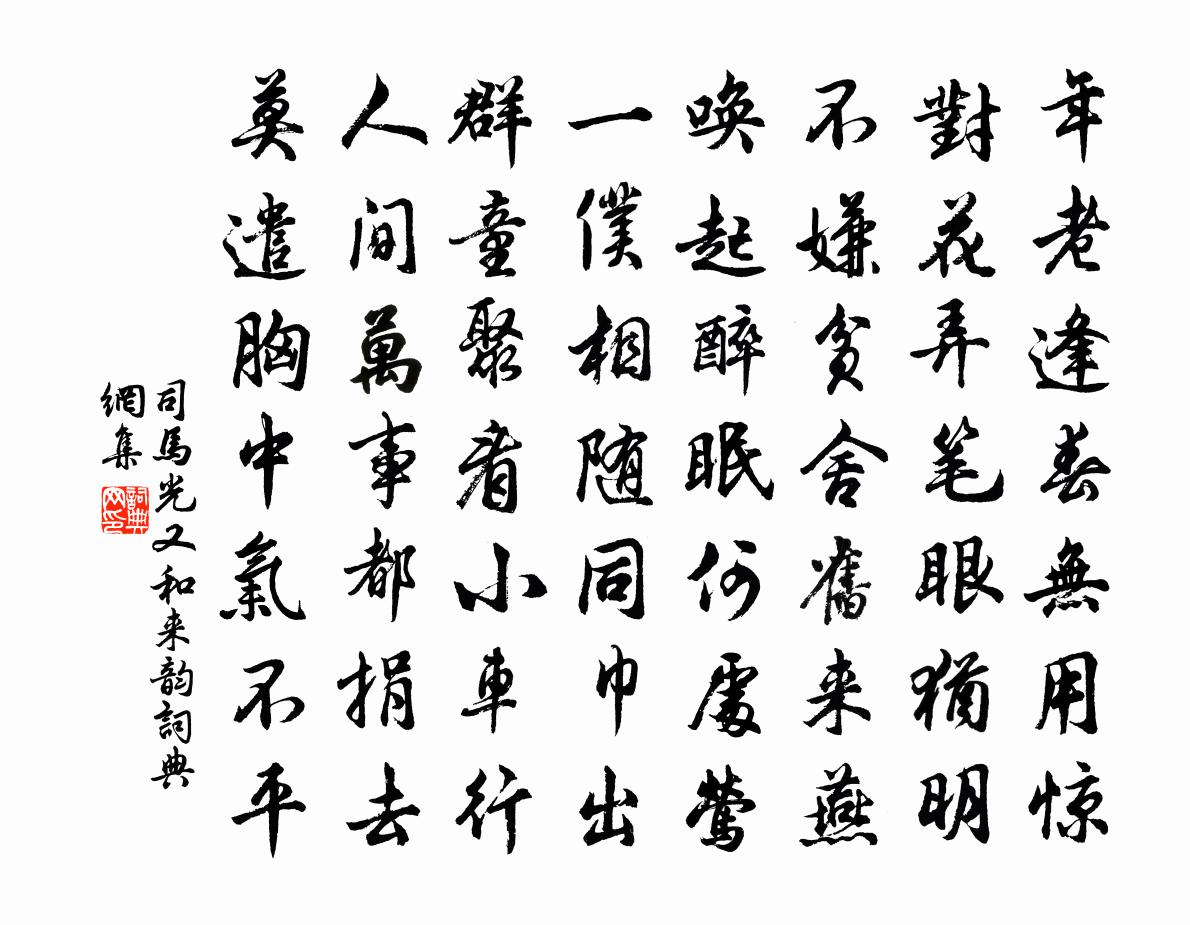 年老逢春無用惊
對花弄笔眼猶明
不嫌貧舍舊来燕
喚起醉眠何處鶯
一僕相随同巾出
群童聚看小車行
人间萬事都捐去
莫遣胸中氣不平
司馬光又和来韵詞典
網集
詞典网印